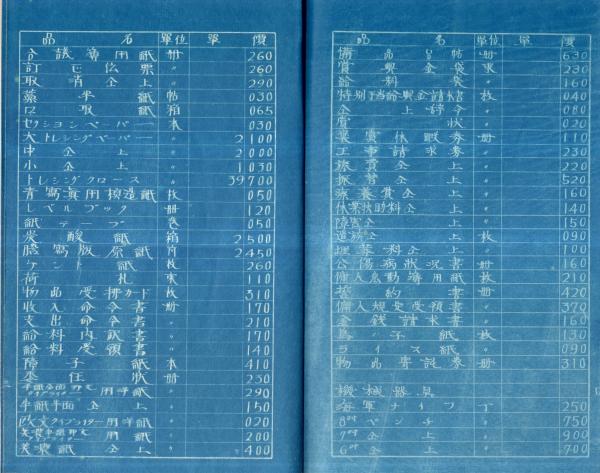 品 名 單位 單 價
会議簿用紙 冊 260
訂正伝票 〃 260
取消仝上 〃 290
藁半紙 帖 030
口取紙 箱 065
セクションペーパー 本 030
大トレシングペーパー 〃 2100
中仝上 〃 2000
小仝上 〃 1030
トレシングクロース 〃 39700
青寫眞用模造紙 枚 050
レベルブック 冊 120
紙テープ 巻 050
炭酸紙 箱 2500
謄寫版原紙 〃 2450
アント紙 枚 260
荷札 束 110
物品受拂カード 枚 310
收入命令書 冊 170
支出命令書 〃 210
給料内訳書 〃 170
給料受領書 〃 140
障子紙 本 410
委任狀 冊 230
用洋紙 〃 290
半紙半面仝上 〃 150
欧文タイプライター用洋紙 〃 020
用紙 〃 200
美濃紙仝上 〃 400
品 名 單位 單 價
備品台帖 冊 630
賞與金袋 束 230
給料袋 〃 160
枚 040
仝上辞令 〃 080
狀 〃 020
休暇券 冊 110
工事請求券 〃 230
旅費仝上 〃 220
旅費仝上 〃 520
療養費仝上 〃 160
休業扶助料仝上 〃 140
障害仝上 〃 150
遺族仝上 枚 090
埋葬料仝上 〃 100
公傷病狀況書 冊 160
傭人名動簿用紙 枚 210
誓約書 冊 420
傭人規史受領書 〃 370
金錢請求書 〃 160
鳥子紙 枚 130
ライス紙 〃 090
物品寄託券 冊 310
機械器具
海軍ナイフ 丁 250
8吋ペンチ 〃 750
7吋仝上 〃 900
6吋仝上 〃 700